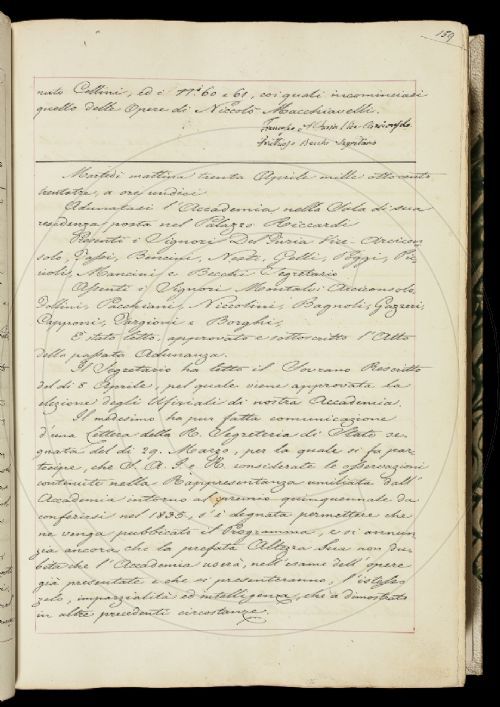 159
nuto Cellini, ed i Nⁱ 60 e 61, coi quali incominciasi
quello delle Opere di Niccolò Macchiavelli.
Francesco Del Furia Vice-Arciconsolo
Fruttuoso Becchi Segretario
Martedì mattina trenta Aprile mille ottocento
trentatre, a ore undici
Adunatasi l'Accademia nella Sala di sua
residenza posta nel Palazzo Riccardi
Presenti i Signori Del Furia Vice-Arcicon-
solo, Fossi, Bencini, Nesti, Gelli, Poggi, Pic-
cioli, Mancini e Becchi Segretario
Assenti i Signori Montalvi Arciconsolo,
Follini, Pacchiani, Niccolini, Bagnoli, Gazzeri,
Capponi, Targioni e Borghi,
È stato letto, approvato e sottoscritto l'Atto
della passata Adunanza.
Il Segretario ha letto il Sovrano Rescritto
del dì 8 Aprile, pel quale viene approvata la
elezione degli Ufiziali di nostra Accademia.
Il medesimo ha pur fatta comunicazione
d'una Lettera della R. Segreteria di Stato se-
gnata del dì 29. Marzo, per la quale si fa par-
tecipe, che S. A. I. e R. considerate le osservazioni
contenute nella Rappresentanza umiliata dall'
Accademia intorno al premio quinquennale da
conferirsi nel 1835, s'è degnata permettere che
ne venga pubblicato il Programma, e si annun-
zia ancora che la prefata Altezza Sua non du-
bita che l'Accademia userà, nell'esame dell'opere
già presentate e che si presenteranno, l'istesso
zelo, imparzialità ed intelligenza, che à dimostrato
in altre precedenti circostanze.